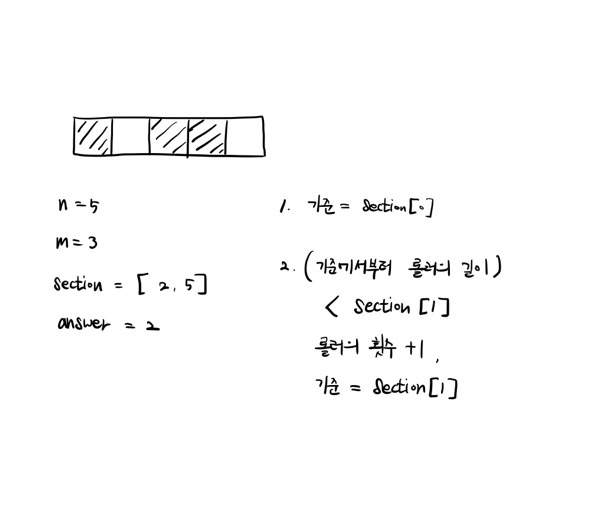 n = 5
m = 3
section = [ 2, 5 ]
answer = 2
1. 기준 = section[0]
2. (기준에서부터 롤러의 길이)
< section [1]
롤러의 횟수 +1,
기준 = section[1]